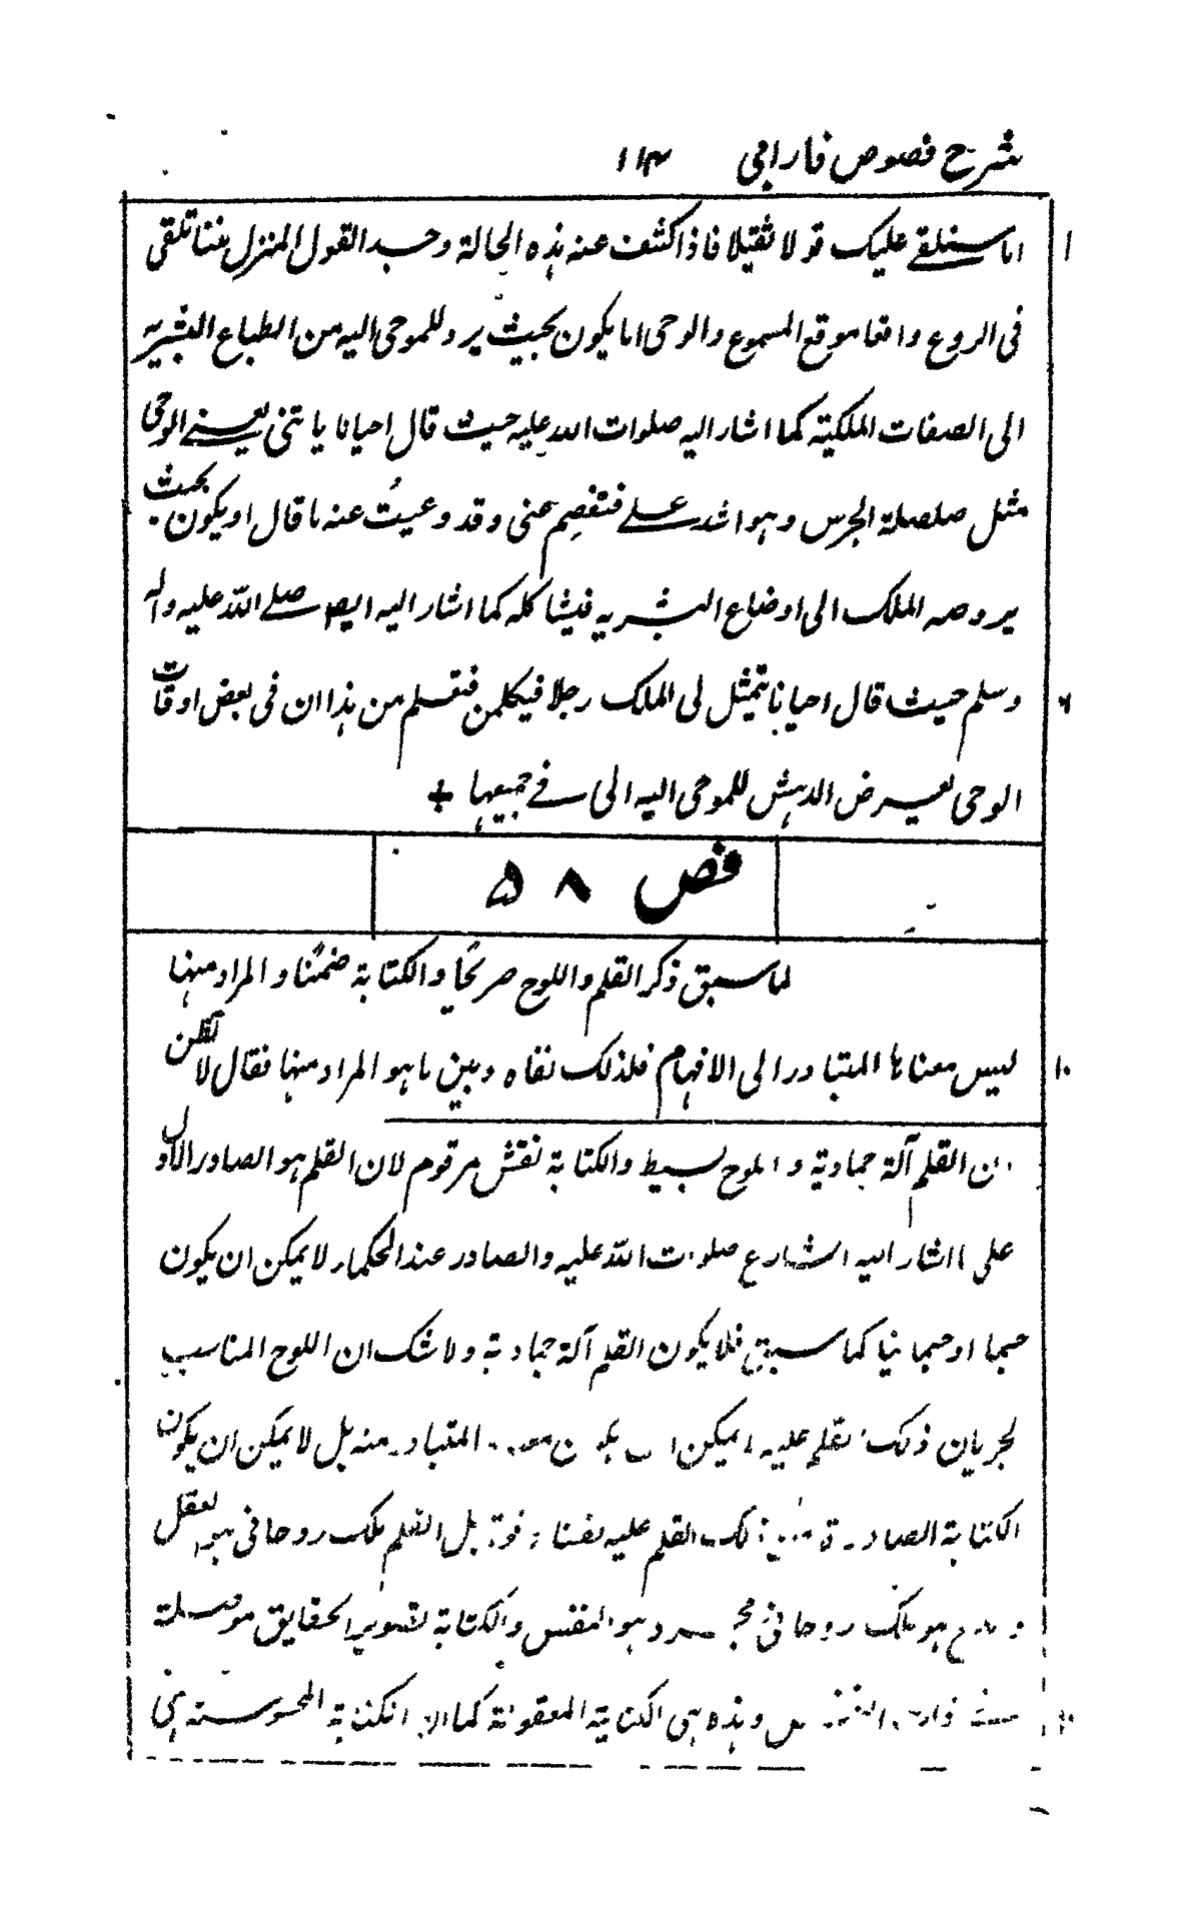 شرح فصوص فارابی ۱۱۴
۱ انا سنلقے علیک قولا ثقیلا فاذا کشف عنہ ہذہ الحالۃ وجد القول المنزل بغتۃ تلقی
فی الروع واقعا موقع المسموع والوحی اما یکون بحیث یرد للموحی الیہ من الطباع البشریہ
الی الصفات الملکیۃ کما اشار الیہ صلوات اللہ علیہ حیث قال احیانا یاتنی یعنے الوحی
مثل صلصلۃ الجرس وہو اشد علے فتفصم عنی وقد وعیت عنہ ما قال او یکون بحیث
یرد الملک الی اوضاع البشریہ فیشاکلہ کما اشار الیہ ایض صلے اللہ علیہ والہ
۶ وسلم حیث قال احیانا یتمثل لی الملک رجلا فیکلمن فتعلم من ہذا ان فی بعض اوقات
الوحی یعرض الدہش للموحی الیہ الی فے جمیعہا +
فص ۵۸
لما سبق ذکر القلم واللوح صریحا والکتابۃ ضمنا والمراد منہا
۱۰ لیس معناہا المتبادر الی الافہام فلذلک نفاہ وبین ما ہو المراد منہا فقال لا تظن
ان القلم آلۃ جمادیۃ واللوح بسیط والکتابۃ نقش مرقوم لان القلم ہو الصادر الاول
علی ما اشار الیہ الشارع صلوات اللہ علیہ والصادر عند الحکماء لا یمکن ان یکون
جسما او جسمانیا کما سبق فلا یکون القلم آلۃ جمادیۃ ولا شک ان اللوح المناسب
لجریان ذلک القلم علیہ یمکن ان یکون المتبادر منہ بل لا یمکن ان یکون
الکتابۃ الصادرۃ القلم علیہ نقشا بل القلم ملک روحانی العقل
ہو ملک روحانی مجرد وہو النفس والکتابۃ تصویر الحقایق
وہذہ ہی الکتابۃ المعقولۃ کما ان الکتابۃ المحسوسۃ ہی